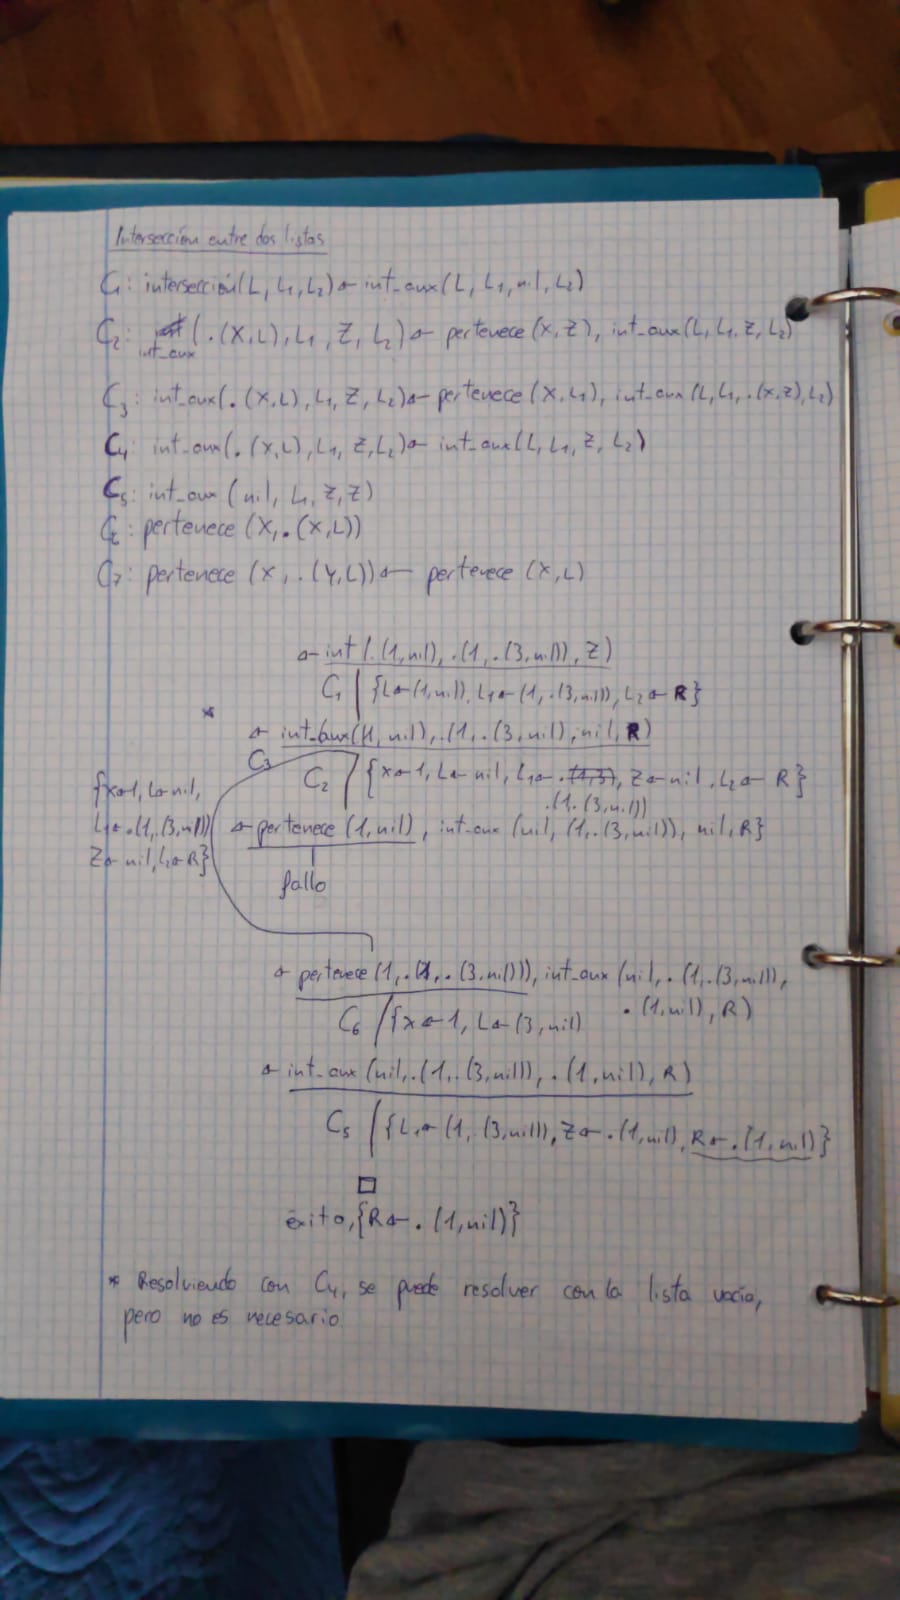 Intersección entre dos listas
C1: intersección(L, L1, L2) ← int_aux(L, L1, nil, L2)
C2: int_aux (.(X,L), L1, Z, L2) ← pertenece (X,Z), int_aux(L, L1, Z, L2)
C3: int_aux(.(X,L), L1, Z, L2) ← pertenece (X,L1), int_aux (L, L1, .(X,Z), L2)
C4: int_aux(.(X,L), L1, Z, L2) ← int_aux(L, L1, Z, L2)
C5: int_aux (nil, L1, Z, Z)
C6: pertenece (X, .(X,L))
C7: pertenece (X, .(Y,L)) ← pertenece (X,L)
← int (.(1,nil), .(1, .(3,nil)), Z)
C1 {L←(1,nil), L1←(1, .(3,nil)), L2←R}
*
← int_aux((1, nil), .(1, .(3,nil), nil, R)
C3
C2 {X←1, L←nil, L1← .(1.(3,nil)), Z←nil, L2←R}
{X←1, L←nil,
L1← .(1, .(3,nil))
Z←nil, L2←R}
← pertenece (1,nil), int_aux (nil, (1, .(3,nil)), nil, R}
fallo
← pertenece (1, .(1, .(3,nil))), int_aux (nil, .(1, .(3,nil)),
.(1,nil), R)
C6 {X←1, L←(3,nil)
← int_aux (nil, .(1, .(3,nil)), .(1,nil), R)
C5 {L1←(1, .(3,nil)), Z← .(1,nil), R← .(1,nil)}
□
éxito, {R← .(1,nil)}
* Resolviendo con C4, se puede resolver con la lista vacía,
pero no es necesario.